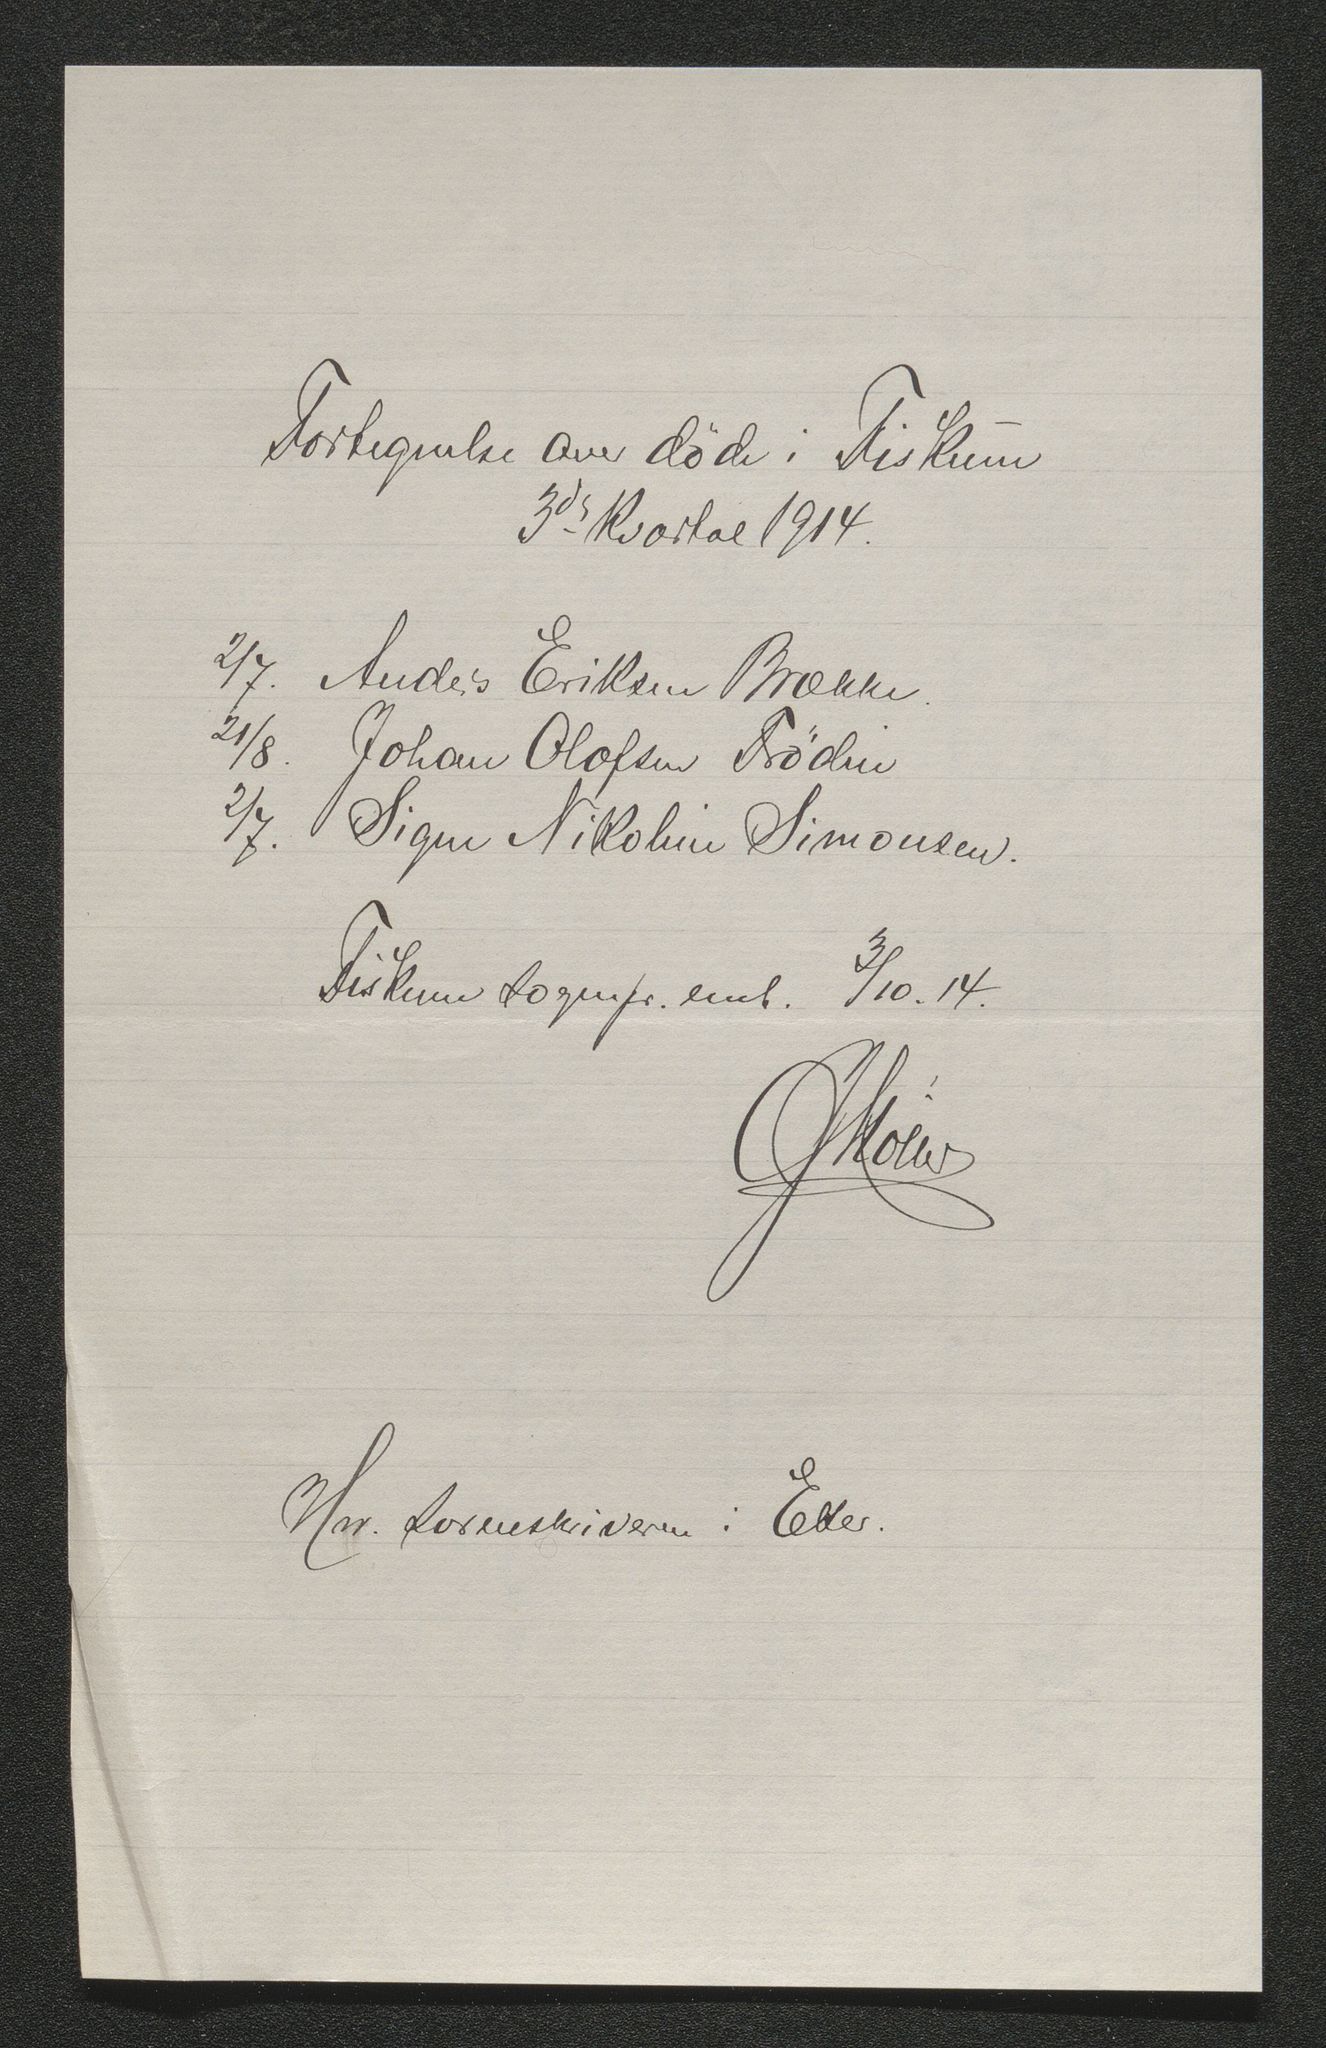 Fortegnelse over döde i Fiskum
3dr Kvartal 1914.
2/7. Anders Eriksen Brække.
21/8. Johan Olofsen Frödin
2/7. Signe Nikoline Simonsen.
Fiskum sognepr. emb. 3/10. 14.
Möller
Hrr. sorenskriveren i Eker.